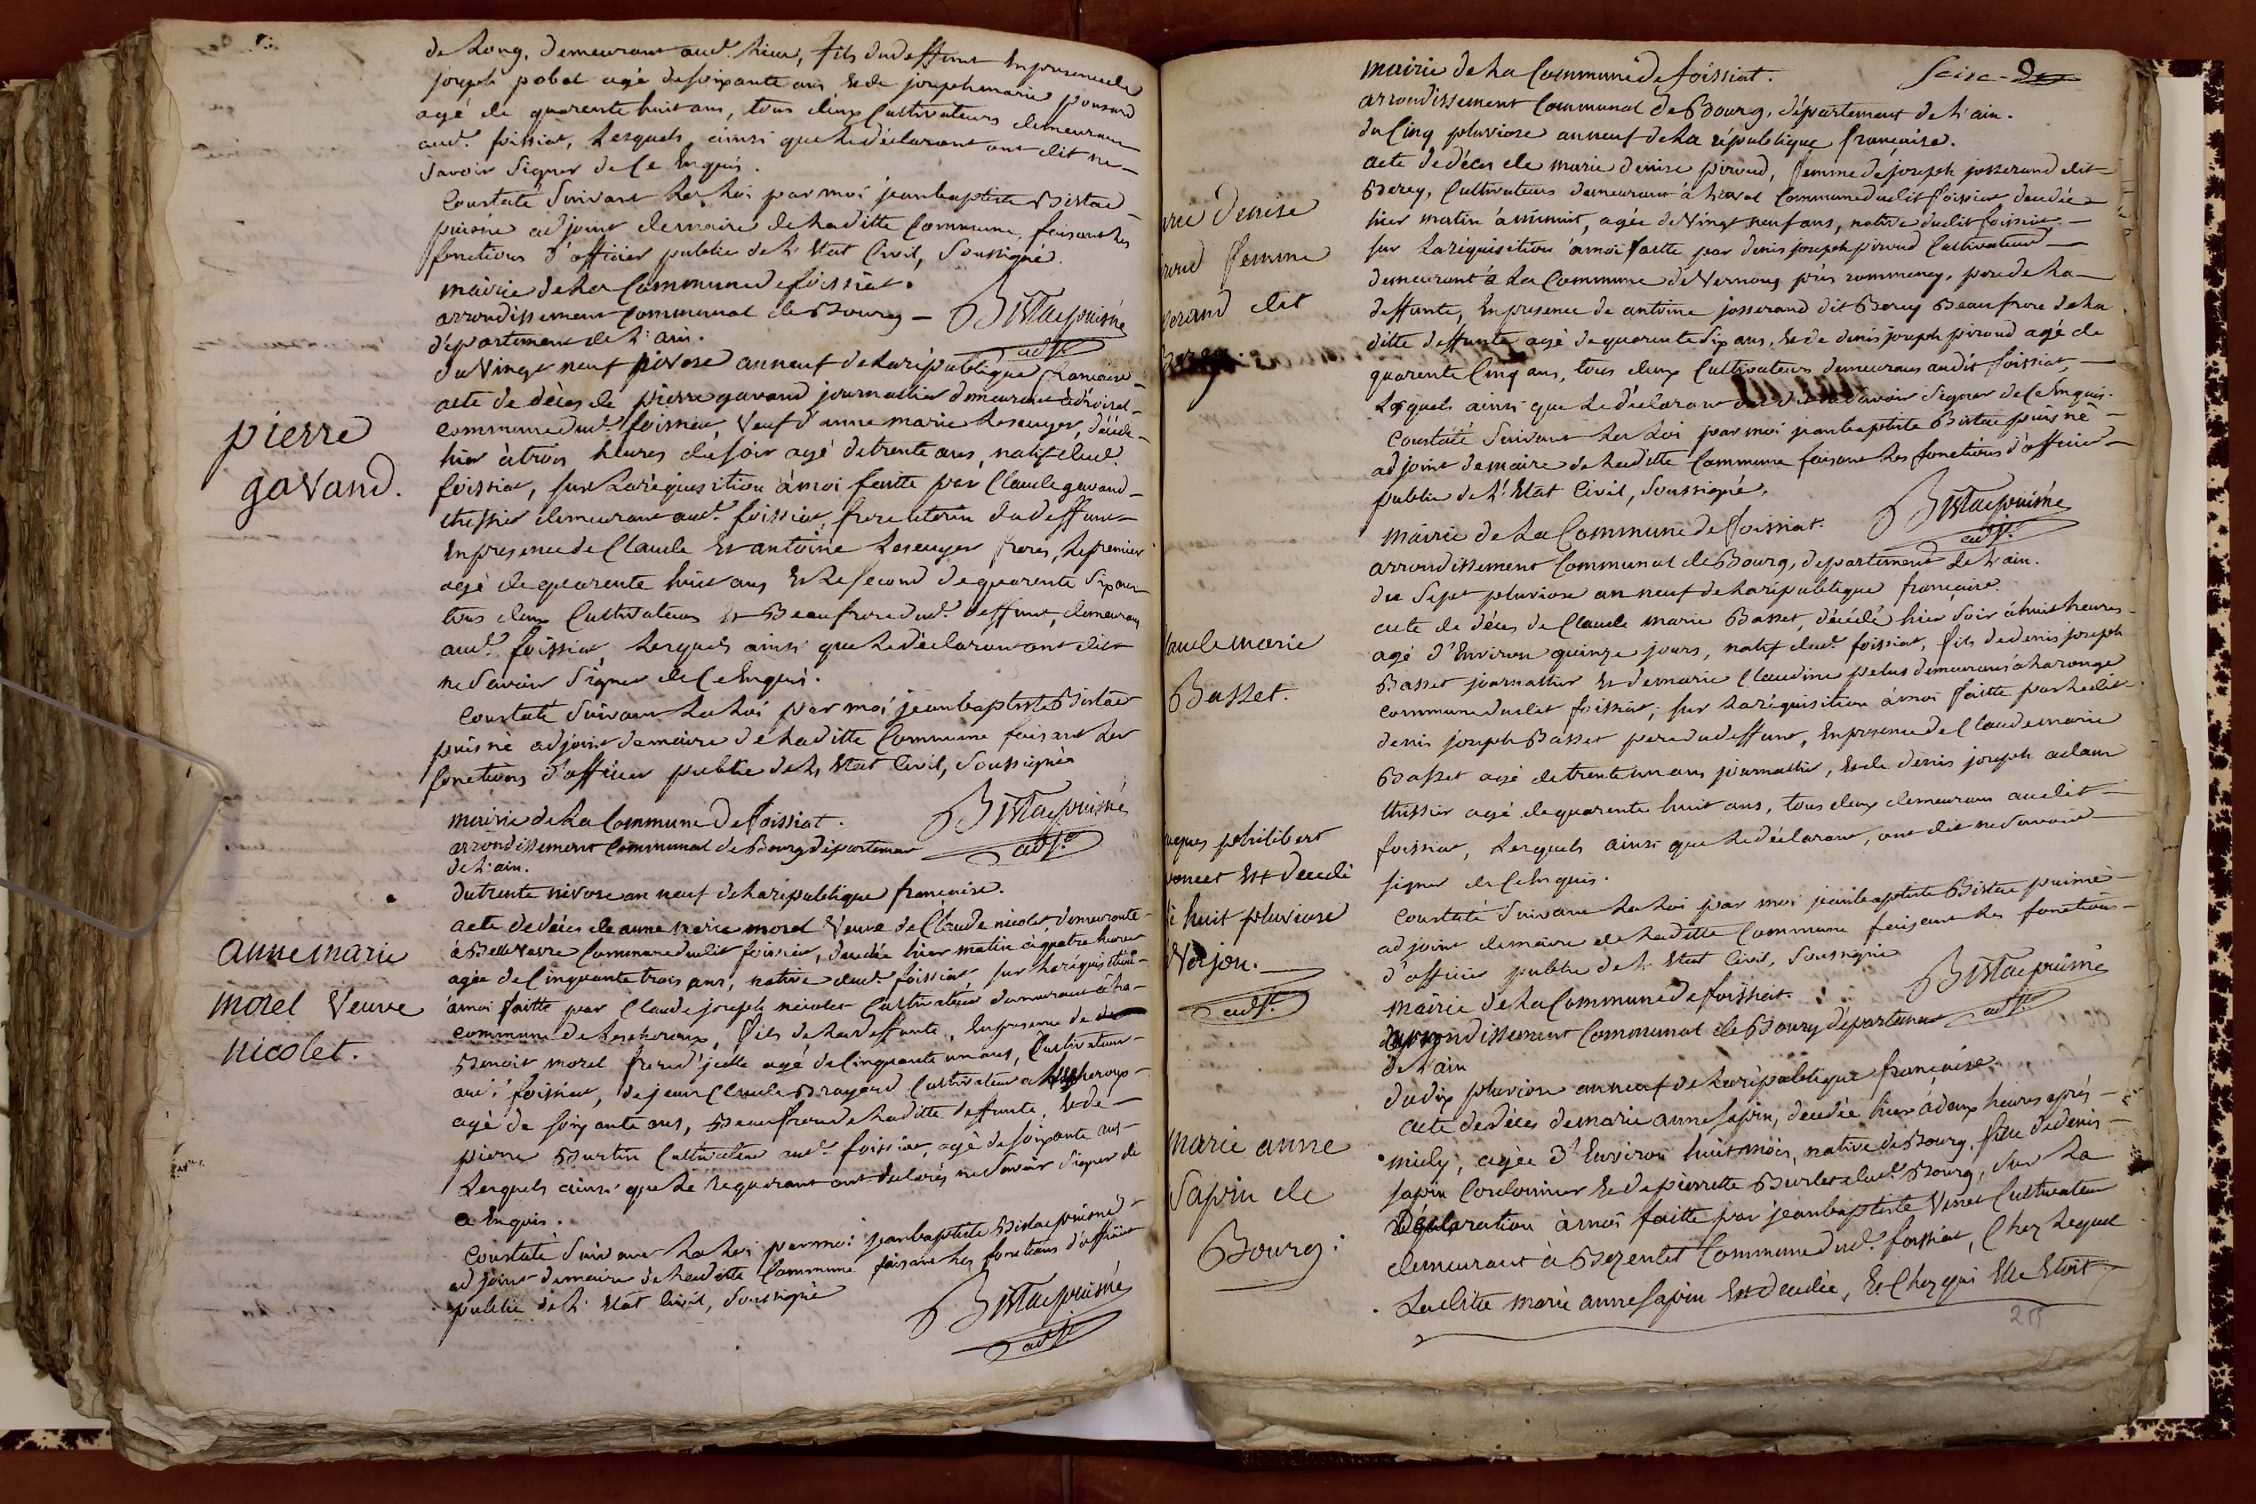 de Long, demeurant aud. lieu, fils dud effunt En presence de
joseph pobel agé de soixante ans Et de joseph marie ponsard
agé de quarente huit ans, tous deux Cultivateurs demeurant
aud. foissiat, Lesquels ainsi que Le déclarant ont dit ne
savoir signer de Ce Enquis.
Constaté Suivant La Loi par moi jean baptiste Bistac
puisné adjoint de maire de Laditte Commune, faisant Les
fonctions d'officier public de L'Etat Civil, Soussigné.
mairie de La Commune de foissiat.
arrondissement Communal de Bourg
département de L'ain.
Bistac puisné
adjt.
du Vingt neuf nivose an neuf de La république francaise
acte de décès de pierre gavand journallier demeurant
commune dud. foissiat, Veuf d'anne marie Lescuyer, décédé
hier à trois heures du soir agé de trente ans, natif dud.
foissiat, sur La réquisition à moi faitte par Claude gavand
thissier demeurant aud. foissiat, frere uterin du deffunt
En presence de Claude Et antoine Lescuyer freres, Le premier
agé de quarente huit ans Et Le second de quarente Six ans
tous deux Cultivateurs Et Beaufrere dud. deffunt, demeurans
aud. foissiat, Lesquels ainsi que Le déclarant ont dit
ne Savoir Signer de Ce Enquis.
Constaté Suivant La Loi par moi jean baptiste Bistac
puisnè adjoint de maire de Laditte Commune faisant Les
fonctions d'officier public de L'Etat Civil, Soussigné
mairie de La Commune de foissiat.
arrondissement Communal de Bourg département
de L'ain.
Bistac puisné
adjt.
du trente nivose an neuf de La république francaise.
acte de décès de anne marie morel Veuve de Claude nicolet, demeurante
à Commune dudit foissiat, décédée hier matin à quatre heures
agée de Cinquante trois ans, native dud. foissiat sur La réquisition
à moi faitte par Claude joseph nicolet Cultivateur demeurant à La
commune de Lescheroux, fils de La deffunte, En presence de
Benoit morel frere d'icelle agé de Cinquante un ans, Cultivateur
aud. foissiat, de jean Claude Brayard Cultivateur a Lescheroux
agé de soixante ans, Beaufrere de Laditte deffunte, Et de
pierre Burtin Cultivateur aud. foissiat, agé de soixante ans
Lesquels ainsi que Le requerant ont declarés ne Savoir Signer de
ce Enquis.
Constaté Suivant La Loi par moi jean baptiste Bistac puisné
adjoint de maire de Laditte Commune faisant Les fonctions d'officier
public de L'Etat Civil, Soussigné
Bistac puisné
adjt.
pierre
gavand.
anne marie
morel Veuve
nicolet.
rie denise
roud femme
serand dit
aude marie
Basset.
aques philibert
oncet Est decedé
huit pluviose
Verjon.
adjt.
marie anne
Sapin de
Bourg.
Seize
mairie de La Commune de foissiat.
arrondissement Communal de Bourg, département de L'ain.
du Cinq pluviose an neuf de La république francaise.
acte de décès de marie denise piroud, femme de joseph josserand dit
Berey, Cultivateurs demeurant à Commune dudit foissiat decedée
hier matin à minuit, agée de Vingt neuf ans, native dudit foissiat
sur La réquisition à moi faitte par denis joseph piroud Cultivateur
demeurant à La Commune de Vernoux près rommenay, pere de La
deffunte, En presence de antoine josserand dit Berey Beaufrere de La
ditte deffunte agé de quarente Six ans, Et de denis joseph piroud agé de
quarente Cinq ans, tous deux Cultivateurs demeurans audit foissiat,
Lesquels ainsi que Le déclarant ont dit ne Savoir Signer de Ce Enquis.
Constaté Suivant La Loi par moi jean baptiste Bistac puisné
adjoint de maire de Laditte Commune faisant Les fonctions d'officier
public de L'Etat Civil, Soussigné.
Bistac puisné
adjt.
mairie de La Commune de foissiat.
arrondissement Communal de Bourg, département de L'ain.
du Sept pluviose an neuf de La république francaise.
acte de décès de Claude marie Basset, décédé hier soir à huit heures
agé d'Environ quinze jours, natif dud. foissiat, fils de denis joseph
Basset journallier Et de marie Claudine pelus demeurans à La ronge
commune dudit foissiat, sur La réquisition à moi faitte par Ledit
denis joseph Basset pere du deffunt, En presence de Claude marie
Basset agé de trente un ans journallier, Et de denis joseph adam
thissier agé de quarente huit ans, tous deux demeurans audit
foissiat, Lesquels ainsi que Le déclarant, ont dit ne Savoir
signer de Ce Enquis.
Constaté Suivant La Loi par moi jean baptiste Bistac puisné
adjoint de maire de Laditte Commune faisant Les fonctions
d'officier public de L'Etat Civil, Soussigné
Bistac puisné
adjt.
mairie de La Commune de foissiat.
arrondissement Communal de Bourg département
de L'ain
du dix pluviose an neuf de La république francaise.
acte de décès de marie anne Sapin, decedée hier à deux heures après
midy, agée d'Environ huit mois, native de Bourg, fille de denis
Sapin Cordonnier Et de pierrette Burlet dud. Bourg, sur La
Déclaration à moi faitte par jean baptiste Vinet Cultivateur
demeurant à Bezentet Commune dud. foissiat, Chez Lequel
Laditte marie anne Sapin Est decedée, Et Chez qui Elle Etoit
215